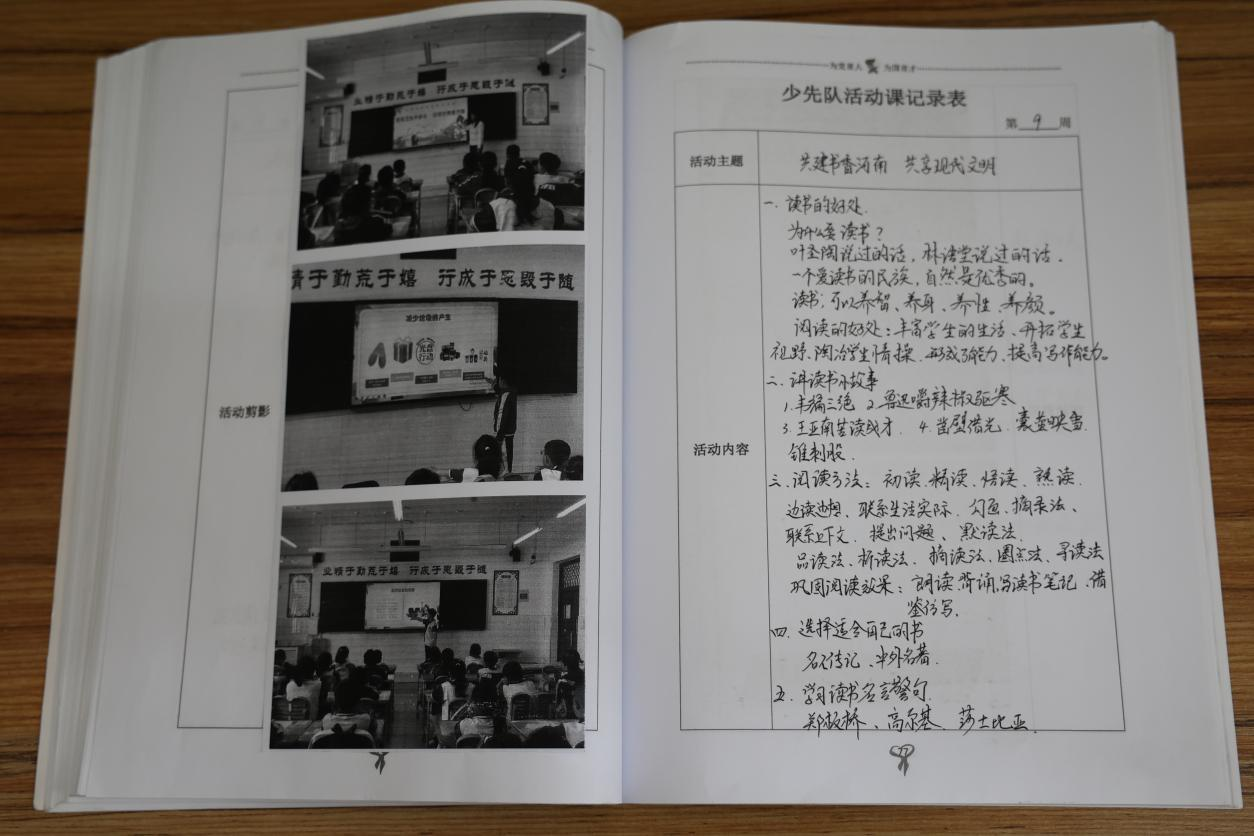 业精于勤荒于嬉 行成于思毁于随
精于勤荒于嬉 行成于思毁于随
减少垃圾的产生
光盘行动
业精于勤荒于嬉 行成于思毁于随
活动剪影
为党育人 为国育才
少先队活动课记录表
第 9 周
活动主题
共建书香河南 共享现代文明
活动内容
一. 读书的好处.
为什么要读书?
叶圣陶说过的话, 林语堂说过的话.
一个爱读书的民族, 自然是优秀的。
读书: 可以养智、养身、养性、养颜。
阅读的好处: 丰富学生的生活、开拓学生
视野、陶冶学生情操、形成了能力、提高写作能力。
二. 讲读书小故事
1. 韦编三绝 2. 鲁迅嚼辣椒驱寒
3. 王亚南苦读成才. 4. 凿壁借光. 囊萤映雪.
锥刺股.
三. 阅读方法: 初读. 精读、悟读、熟读.
边读边想、联系生活实际. 勾画、摘录法、
联系上下文. 提出问题、默读法.
品读法、析读法. 摘读法、圈点法、寻读法
巩固阅读效果: 朗读. 背诵. 写读书笔记. 借
鉴仿写.
四. 选择适合自己的书
名人传记、中外名著.
五. 学习读书名言警句.
郑板桥、高尔基、莎士比亚.